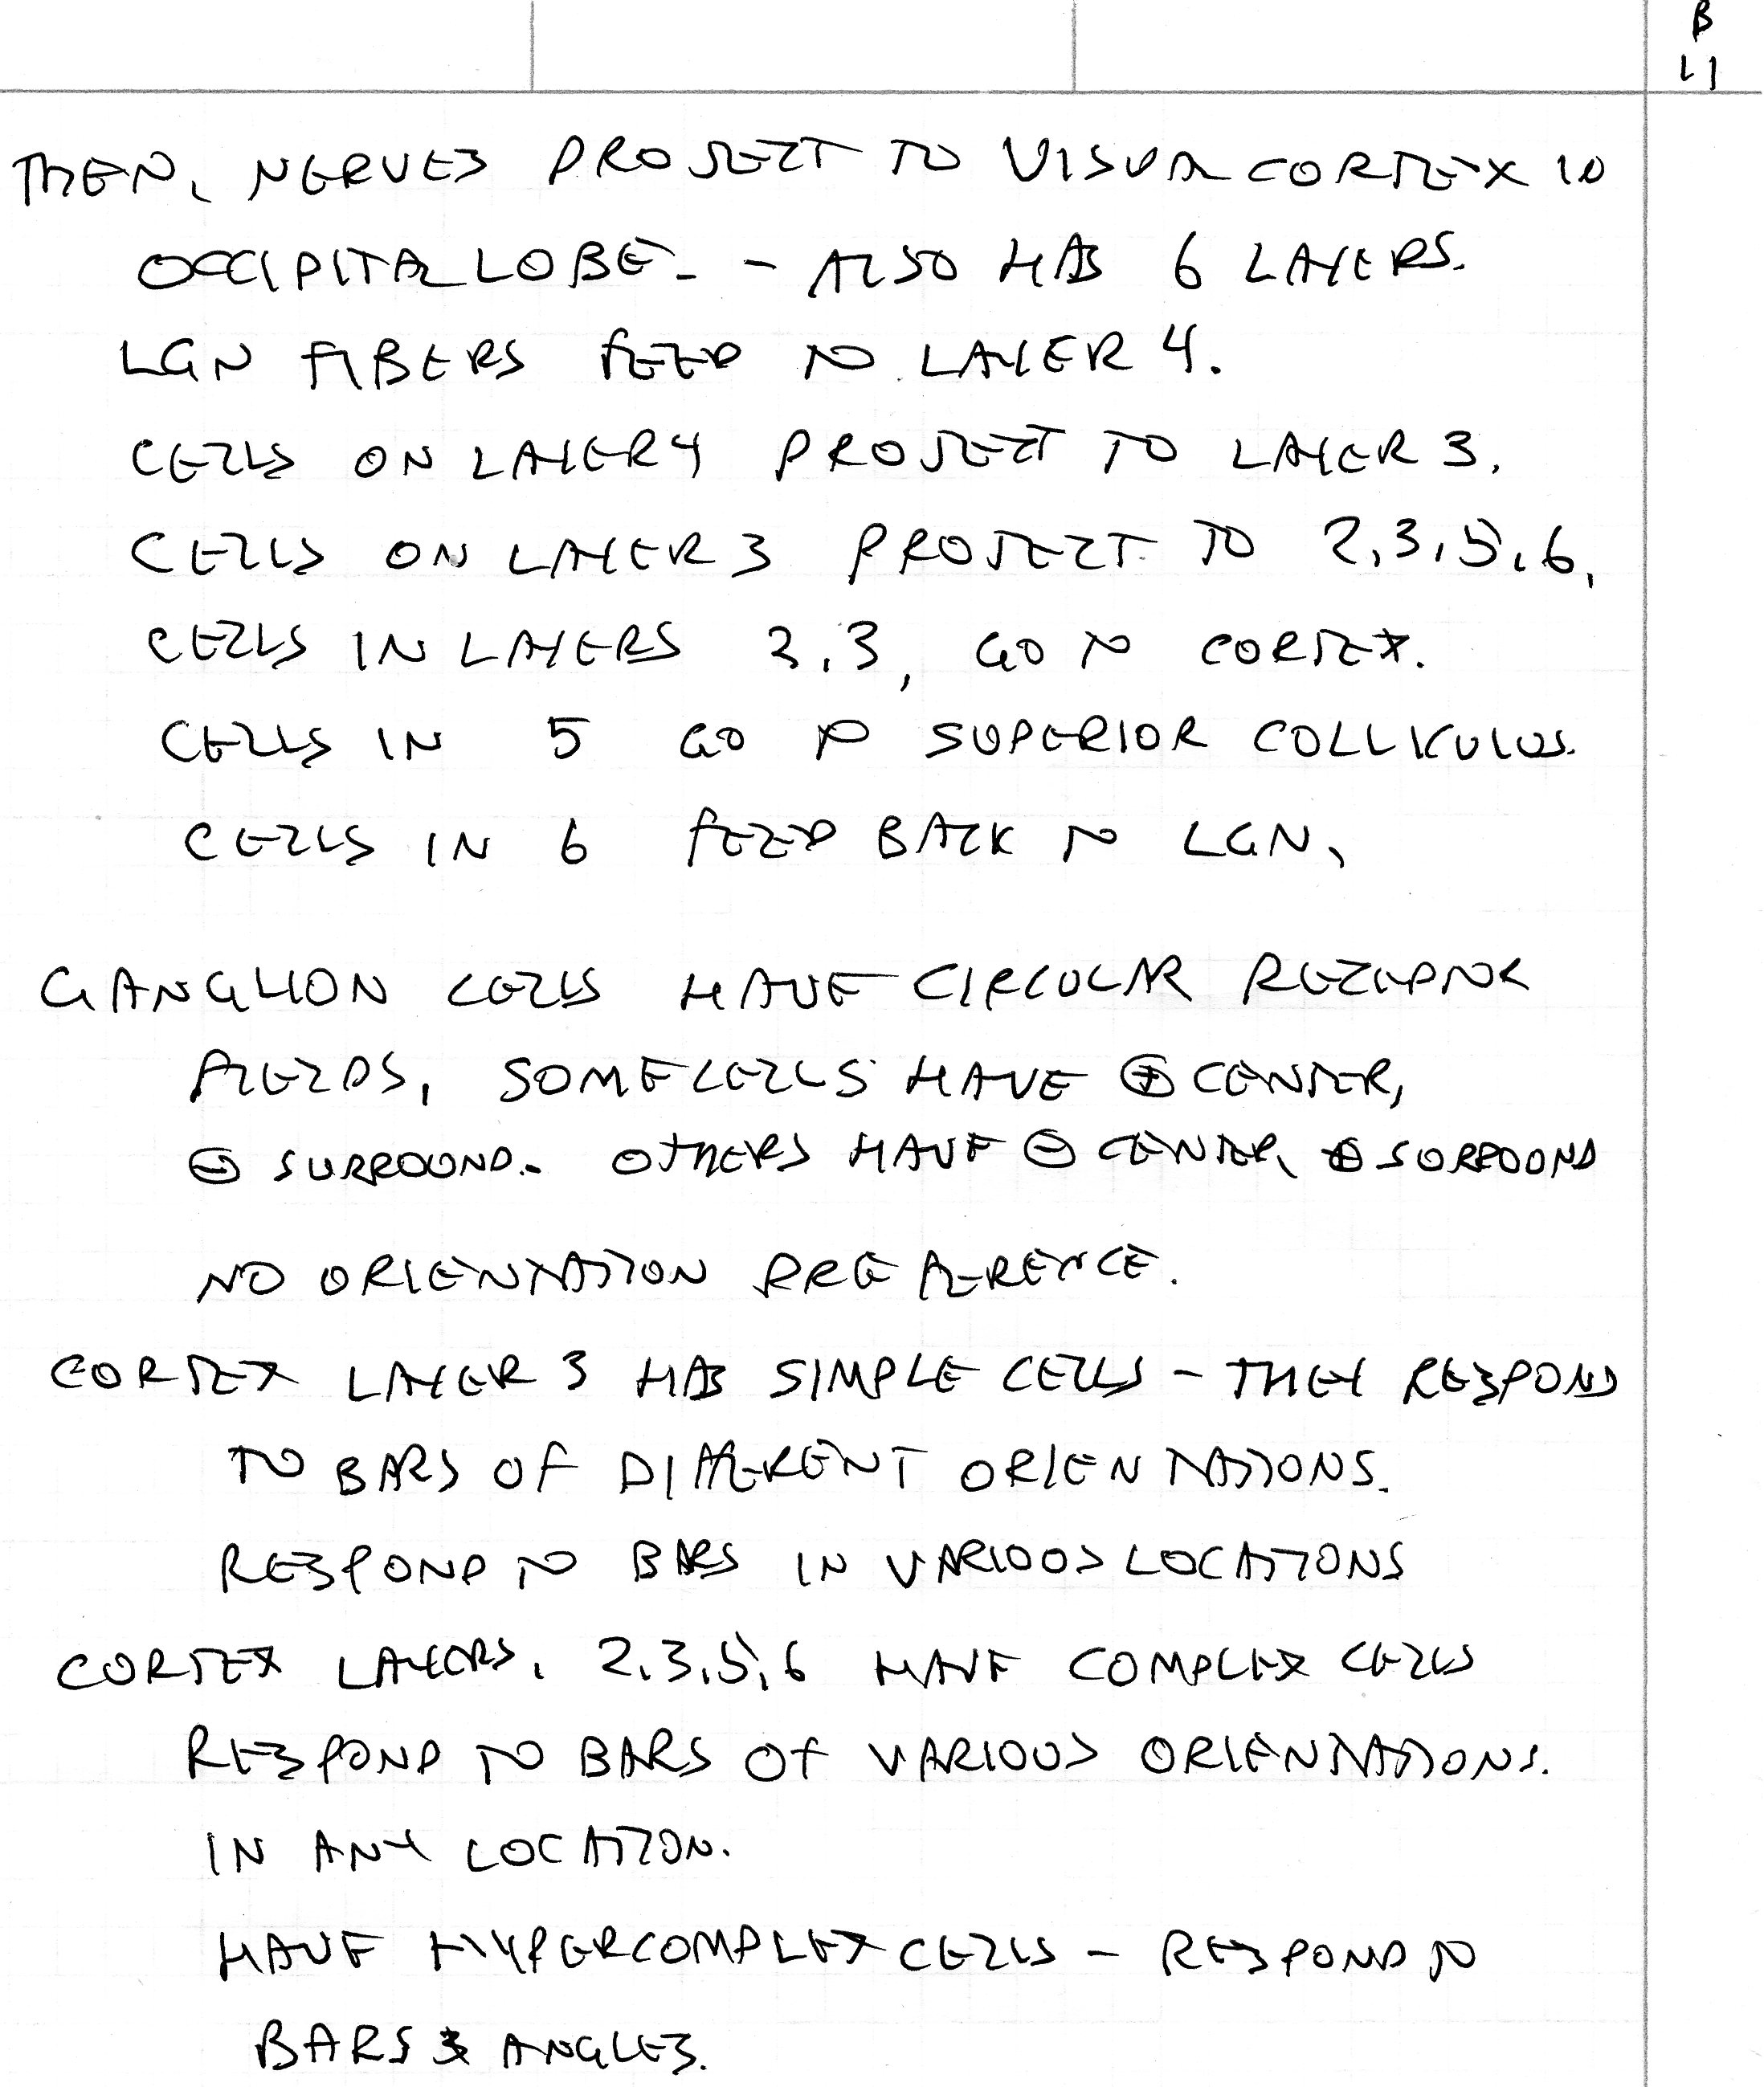 B
L1
THEN, NERVES PROJECT TO VISUAL CORTEX IN
OCCIPITAL LOBE. - ALSO HAS 6 LAYERS.
LGN FIBERS FEED TO LAYER 4.
CELLS ON LAYER 4 PROJECT TO LAYER 3.
CELLS ON LAYER 3 PROJECT TO 2,3,5,6,
CELLS IN LAYERS 2,3, GO TO CORTEX.
CELLS IN 5 GO TO SUPERIOR COLLICULUS.
CELLS IN 6 FEED BACK TO LGN,
GANGLION CELLS HAVE CIRCULAR RECEPTIVE
FIELDS, SOME CELLS HAVE ⊕ CENTER,
⊖ SURROUND. OTHERS HAVE ⊖ CENTER, ⊕ SURROUND
NO ORIENTATION PREFERENCE.
CORTEX LAYER 3 HAS SIMPLE CELLS - THEY RESPOND
TO BARS OF DIFFERENT ORIENTATIONS.
RESPOND TO BARS IN VARIOUS LOCATIONS
CORTEX LAYERS, 2,3,5,6 HAVE COMPLEX CELLS
RESPOND TO BARS OF VARIOUS ORIENTATIONS.
IN ANY LOCATION.
HAVE HYPERCOMPLEX CELLS - RESPOND TO
BARS & ANGLES.